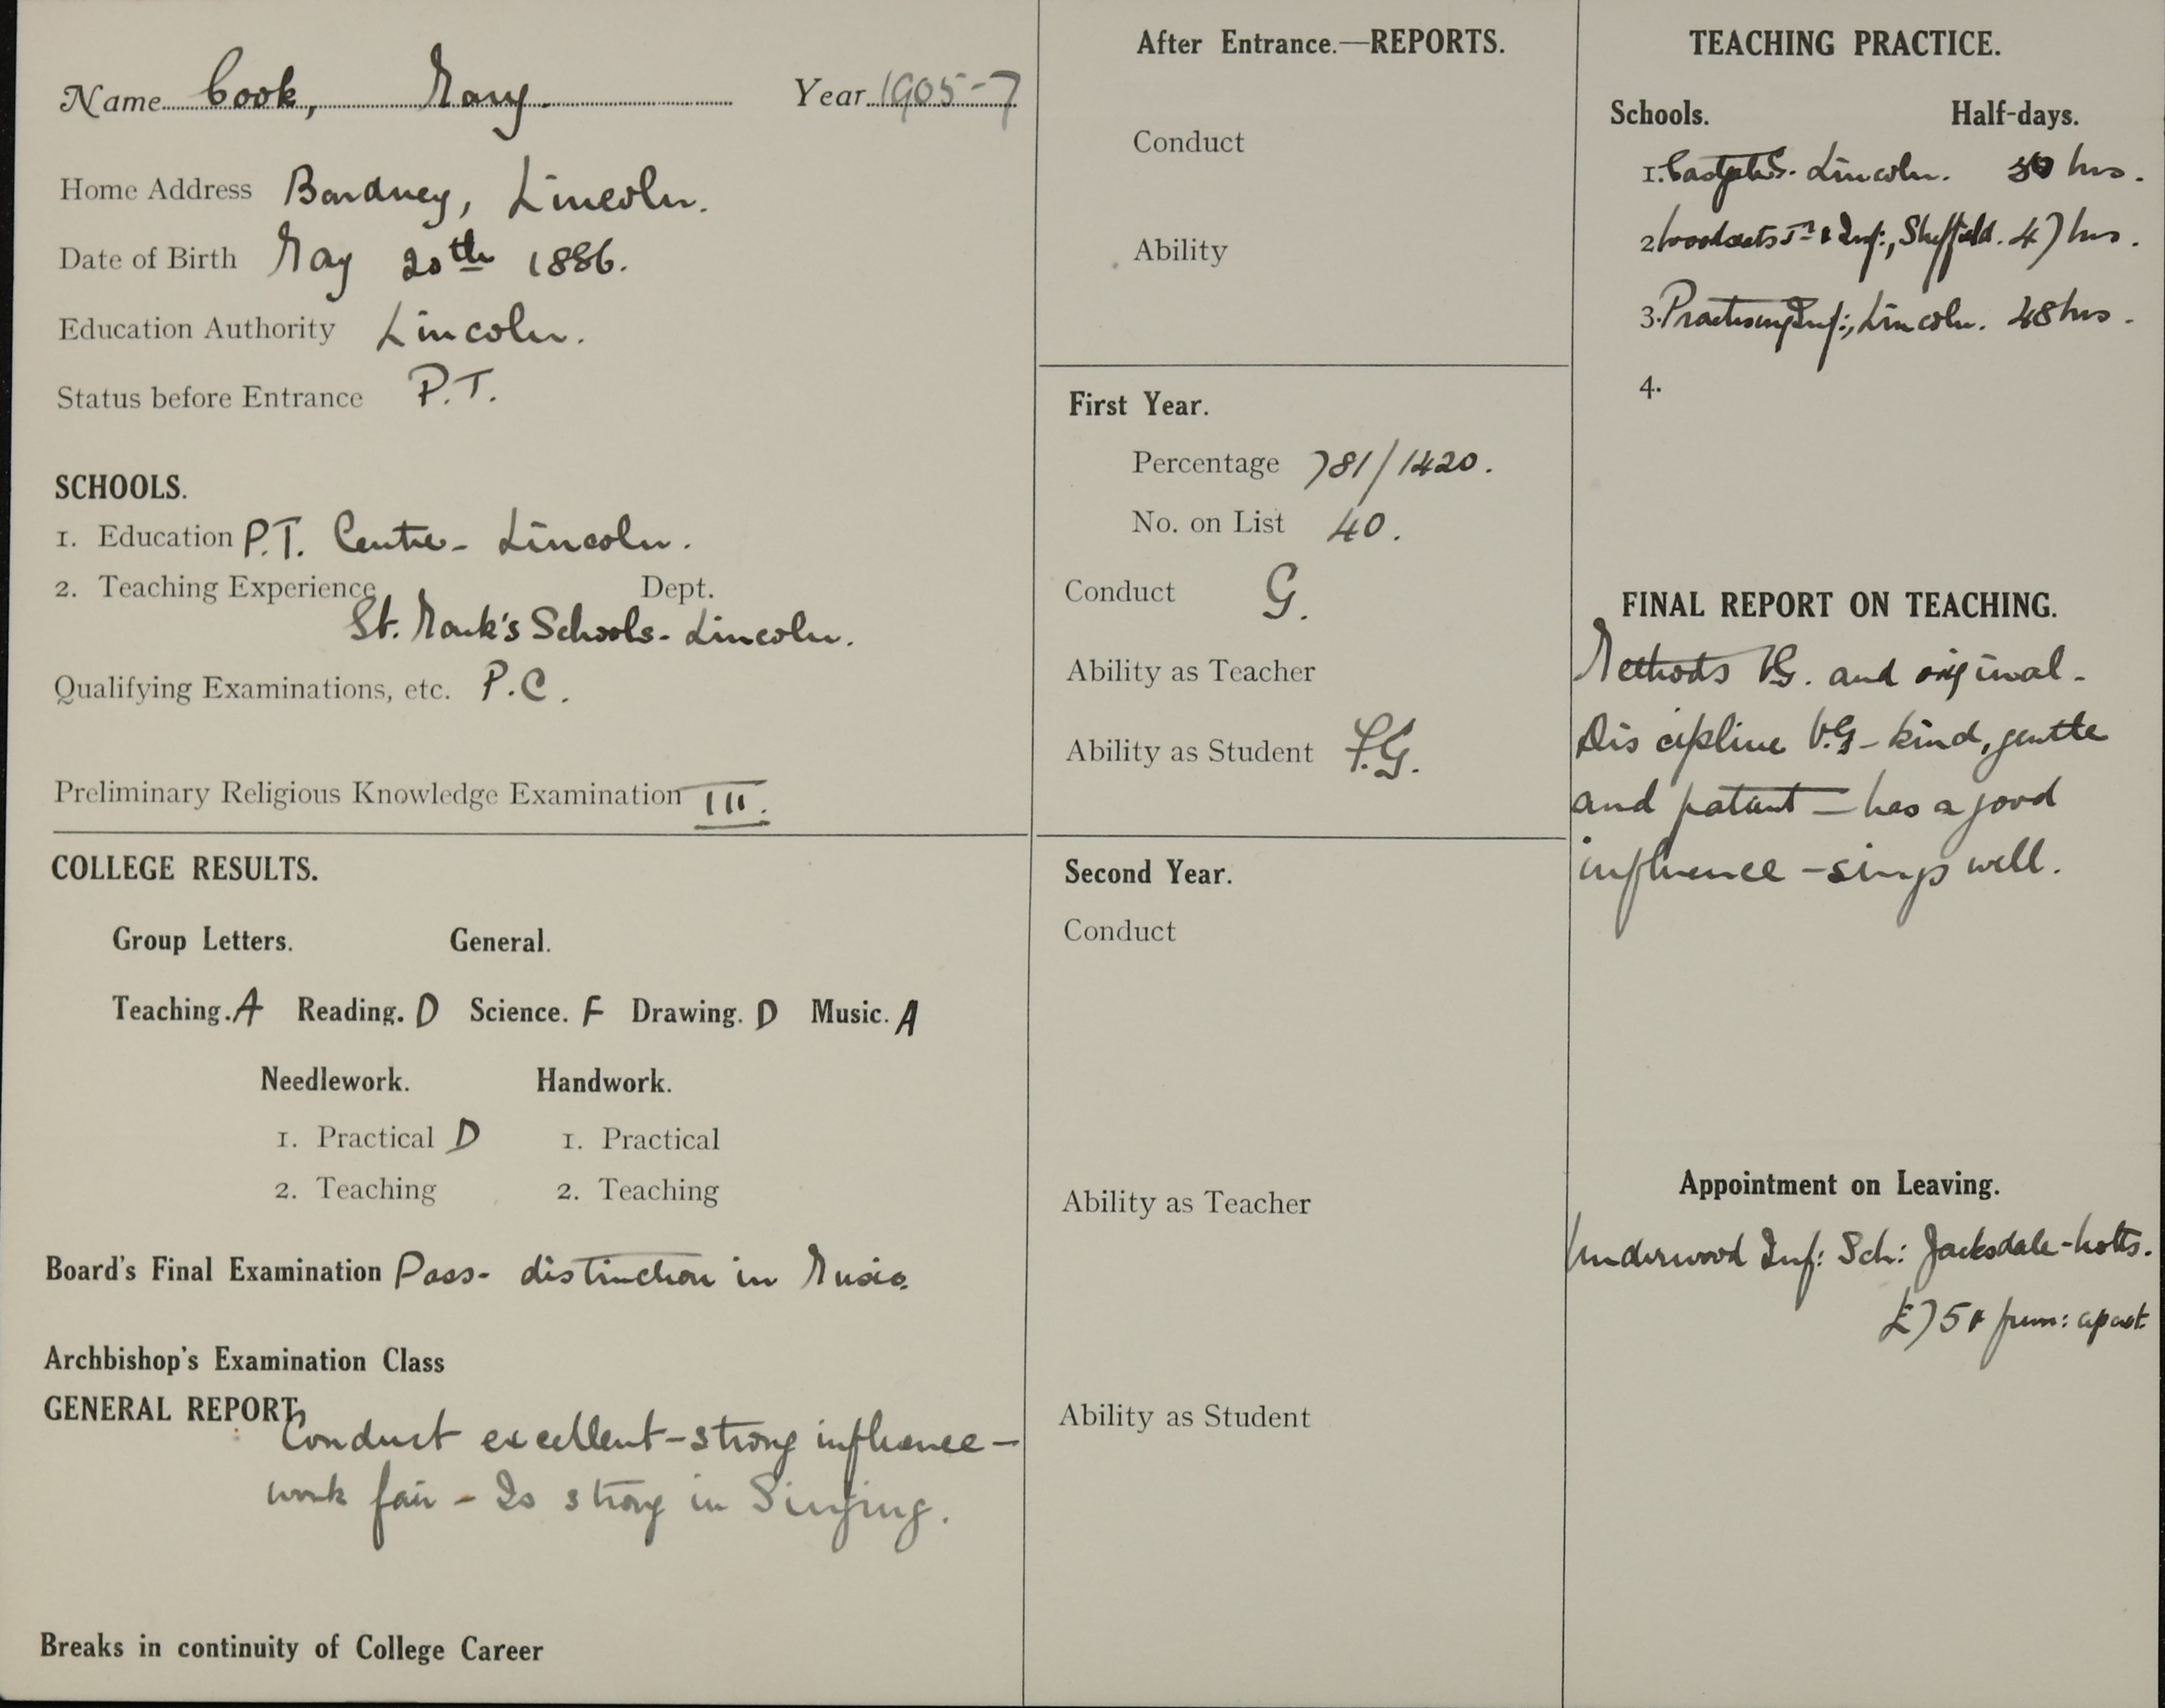 Name Cook, Mary. Year 1905-7
Home Address Bardney, Lincoln.
Date of Birth May 20th 1886.
Education Authority Lincoln.
Status before Entrance P.T.
SCHOOLS.
1. Education P.T. Centre - Lincoln.
2. Teaching Experience Dept.
St. Mark's Schools - Lincoln.
Qualifying Examinations, etc. P.C.
Preliminary Religious Knowledge Examination III.
COLLEGE RESULTS.
Group Letters. General.
Teaching. A Reading. D Science. F Drawing. D Music. A
Needlework. Handwork.
1. Practical D 1. Practical
2. Teaching 2. Teaching
Board's Final Examination Pass - distinction in Music.
Archbishop's Examination Class
GENERAL REPORT.
Conduct excellent - strong influence -
work fair - Is strong in Singing.
Breaks in continuity of College Career
After Entrance.—REPORTS.
Conduct
Ability
First Year.
Percentage 781/1420.
No. on List 40.
Conduct G.
Ability as Teacher
Ability as Student F.G.
Second Year.
Conduct
Ability as Teacher
Ability as Student
TEACHING PRACTICE.
Schools. Half-days.
1. Lincoln. hrs.
2 Inf:, Sheffield. 47 hrs.
3. Practising Inf:, Lincoln. 48 hrs.
4.
FINAL REPORT ON TEACHING.
Methods V.G. and original -
Discipline V.G - kind, gentle
and patient - has a good
influence - sings well.
Appointment on Leaving.
Underwood Inf: Sch: Jacksdale - Notts.
£75